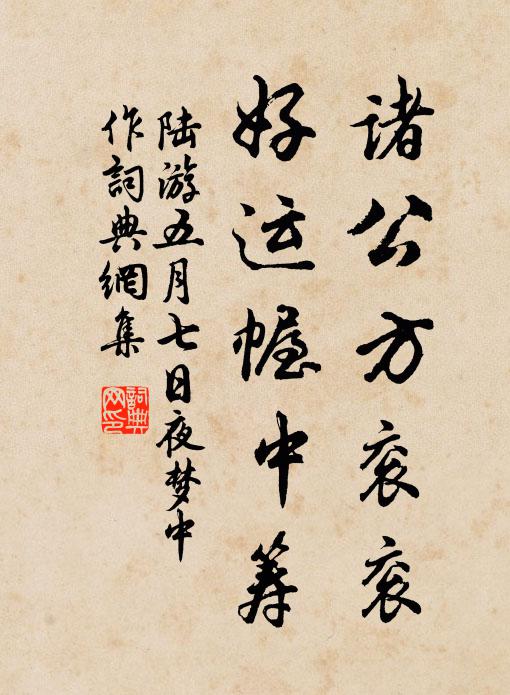 诸公方衮衮
好运幄中筹
陆游五月七日夜梦中
作词典網集
詞典网印